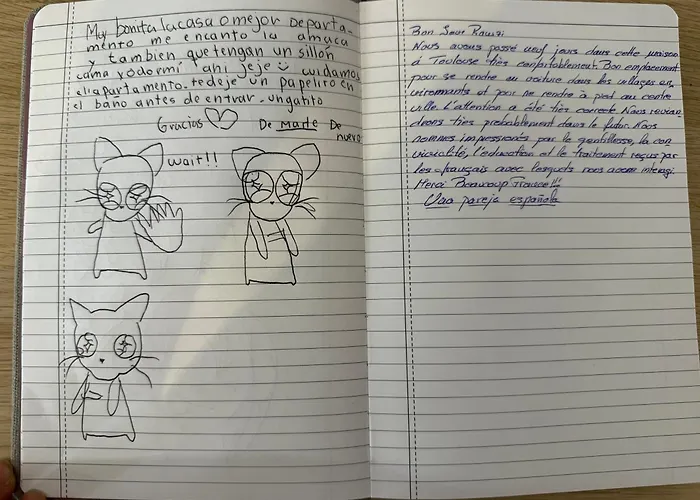 Muy bonita la casa o mejor Departa-
mento me encanto la amaca
y tambien que tengan un sillón
cama yo dormí ahí jeje cuidamos
el apartamento. te deje un papelito en
el baño antes de entrar. un gatito
Gracias De Marte De
nuevo
wait!!
Bon Jour
Nous avons passé neuf jours dans cette maison
à Toulouse très confortablement. Bon emplacement
pour se rendre au voiture dans les villages en
vironnants et pour se rendre à pied au centre
ville. L'attention a été très correcte. Nous revien
drons très probablement dans le futur. Nous
sommes impressionés par la gentillesse, la con
vivialité, l'éducation et le traitement reçus par
les français avec lesquels nous avons interagi.
Merci Beaucoup France!!!
Una pareja española